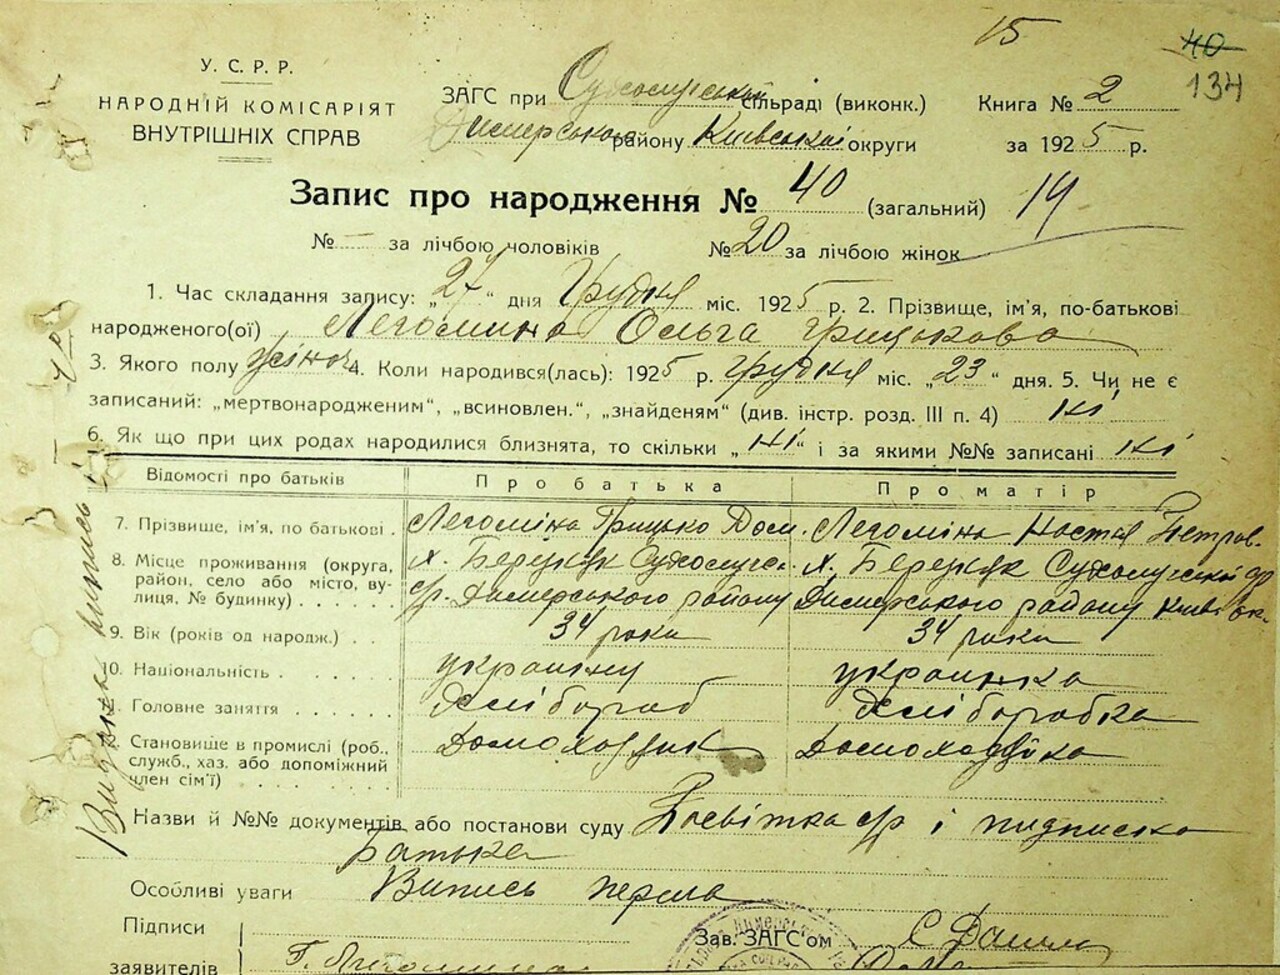 15
40
134
У. С. Р. Р.
НАРОДНІЙ КОМІСАРІЯТ
ВНУТРІШНІХ СПРАВ
ЗАГС при Сухолуцькій сільраді (виконк.)
Димерського району Київської округи
Книга № 2
за 1925 р.
Запис про народження № 40 (загальний) 19
№ — за лічбою чоловіків № 20 за лічбою жінок
1. Час складання запису: „27“ дня Грудня міс. 1925 р. 2. Прізвище, ім'я, по-батькові
народженого(ої) Легомина Ольга Грицькова
3. Якого полу жіноч 4. Коли народився(лась): 1925 р. Грудня міс. „23“ дня. 5. Чи не є
записаний: „мертвонародженим“, „всиновлен.“, „знайденям“ (див. інстр. розд. III п. 4) ні
6. Як що при цих родах народилися близнята, то скільки „ні“ і за якими №№ записані ні
Відомості про батьків Про батька Про матір
7. Прізвище, ім'я, по батькові . Легоміна Грицько Дом. Легоміна Настя Петров.
8. Місце проживання (округа, район, село або місто, вулиця, № будинку) х. Сухолуцької с/р
с/р. Димерського району Димерського району Київ ок.
9. Вік (років од народж.) . . 34 роки 34 роки
10. Національність . . . . . . україніц українка
11. Головне заняття . . . . . . Хлібороб Хліборобка
12. Становище в промислі (роб., служб., хаз. або допоміжний член сім'ї) Домохозяїн Домохозяйка
Назви й №№ документів або постанови суду Посвітка с/р і підписка
Батька
Особливі уваги Випись перша
Підписи
заявителів Г. Легомина
Зав. ЗАГС'ом
Видана випись